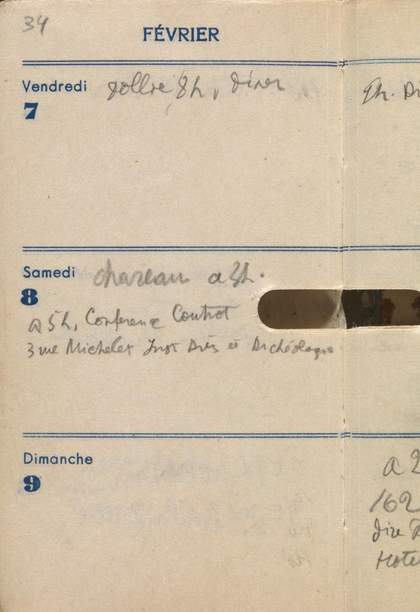 34
FÉVRIER
Vendredi
7
8h, diner
Samedi
8
chareau a 3h.
a 5h, Conference Coutrot
3 rue Michelet Inst Darts et Archéologie
Dimanche
9
9h.
a 2
162
dire
Hote